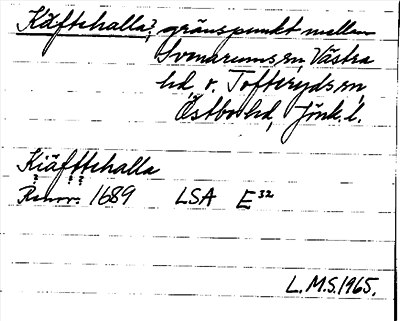 Käftehalla?, gränspunkt mellan
Svenarums sn, Västra
hd, o. Tofteryds sn,
Östbo hd, Jönk. l.
Kiäfttehalla
Renov. 1689 LSA E³²
L.M.S. 1965.